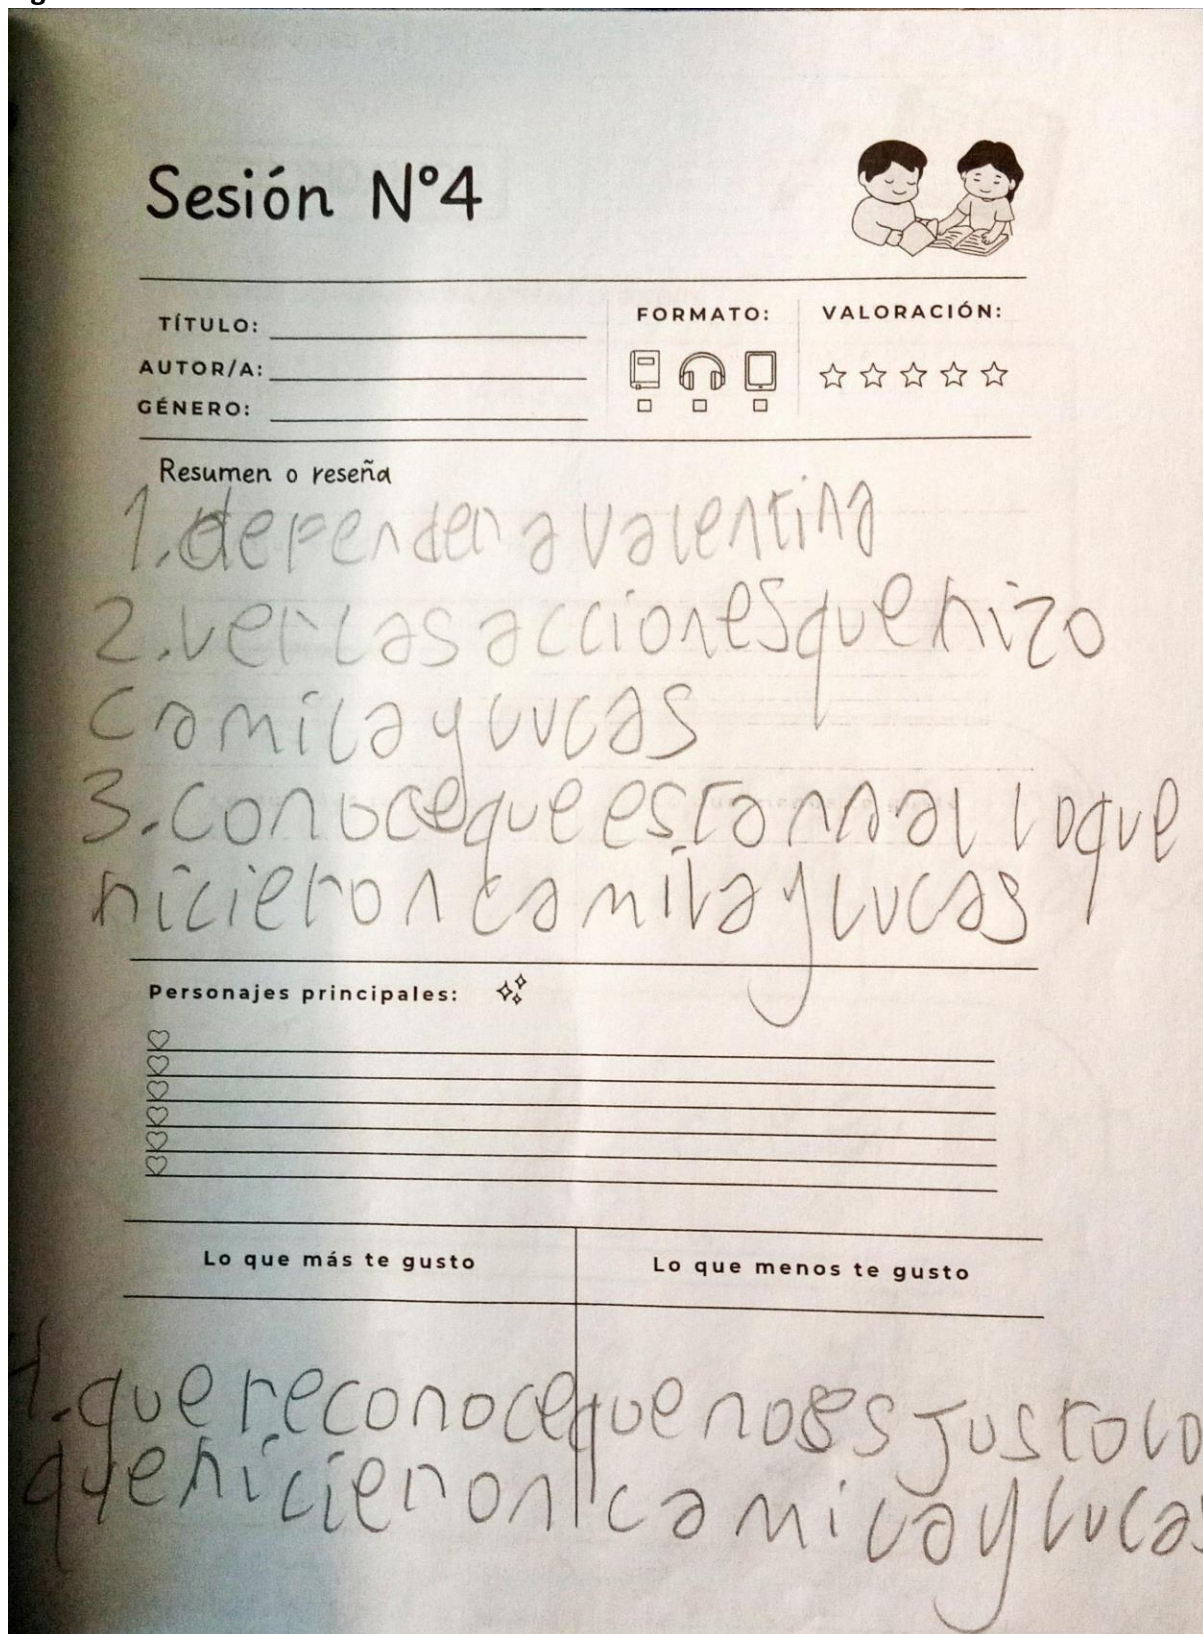 Sesión N°4
TÍTULO:
AUTOR/A:
GÉNERO:
FORMATO:
VALORACIÓN:
Resumen o reseña
1. defender a valentina
2. ver las acciones que hizo
camila y lucas
3. conoce que esta mal lo que
hicieron camila y lucas
Personajes principales:
Lo que más te gusto
Lo que menos te gusto
1. que reconoce que no es justo lo
que hicieron camila y lucas